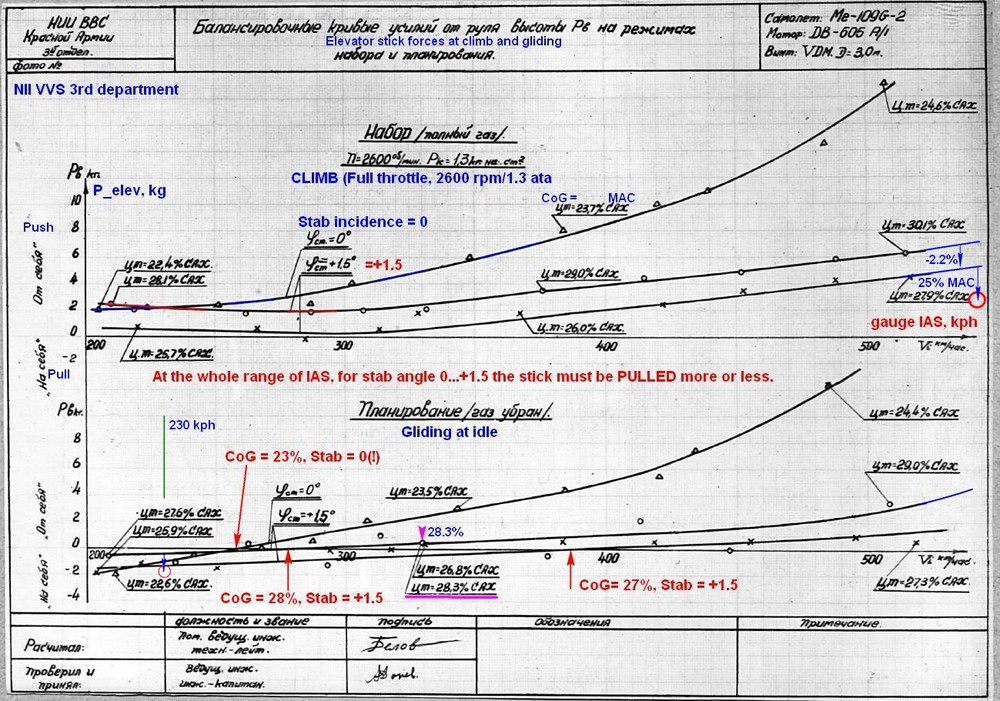 НИИ ВВС
Красной Армии
3й отдел.
фото №
Балансировочные кривые усилий от руля высоты Рв на режимах
Elevator stick forces at climb and gliding
набора и планирования.
Самолет: Ме-109G-2
Мотор: DB-605 A/1
Винт: VDM. D=3,0м.
NII VVS 3rd department
Набор /полный газ/.
n=2600 об/мин. Рк=1,3
CLIMB (Full throttle, 2600 rpm/1.3 ata
Рв кг.
P_elev, kg
Push
От себя"
10
8
6
4
2
0
-2
На себя"
Pull
Stab incidence = 0
φст=0°
φст=+1,5°
=+1.5
CoG = MAC
Цт=24,6% САХ
Цт=23,7% САХ
Цт=30,1% САХ
Цт=22,4% САХ.
Цт=28,1% САХ
29,0% САХ
-2.2%
25% MAC
Цт=27,9% САХ
Цт=26,0% САХ.
Цт=25,7% САХ
gauge IAS, kph
200
300
400
500
Vi км/час.
At the whole range of IAS, for stab angle 0...+1.5 the stick must be PULLED more or less.
Планирование /газ убран/.
Gliding at idle
Рв кг.
От себя"
8
6
4
2
0
-2
-4
На себя"
230 kph
CoG = 23%, Stab = 0(!)
φст=0°
φст=+1,5°
Цт=24,4% САХ
Цт=29,0% САХ
Цт=23,5% САХ
Цт=27,6% САХ
Цт=25,9% САХ
28.3%
200
300
400
500
Vi км/час.
Цт=22,6% САХ.
Цт=26,8% САХ
Цт=28,3% САХ
Цт=27,3% САХ
CoG = 28%, Stab = +1.5
CoG= 27%, Stab = +1.5
должность и звание
подпись
Обозначения
Примечание.
Расчитал:
Пом. ведущ. инж.
техн.-лейт.
Белов
Проверил и
принял:
Ведущ. инж.
инж.-капитан.